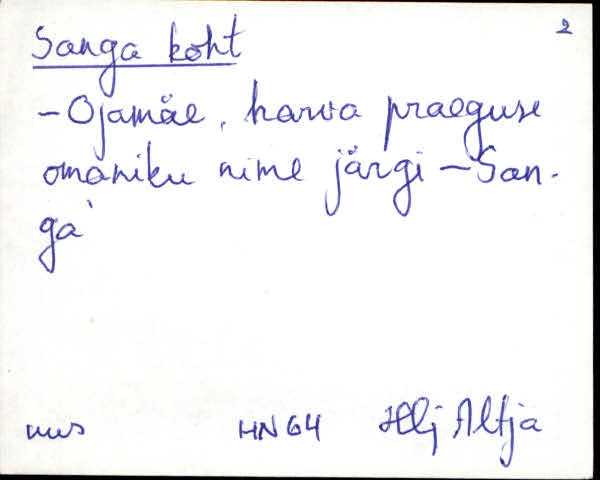 2
Sanga koht
- Ojamäe, harva praeguse
omaniku nime järgi - San-
ga
mus HN 64 Hlj Altja